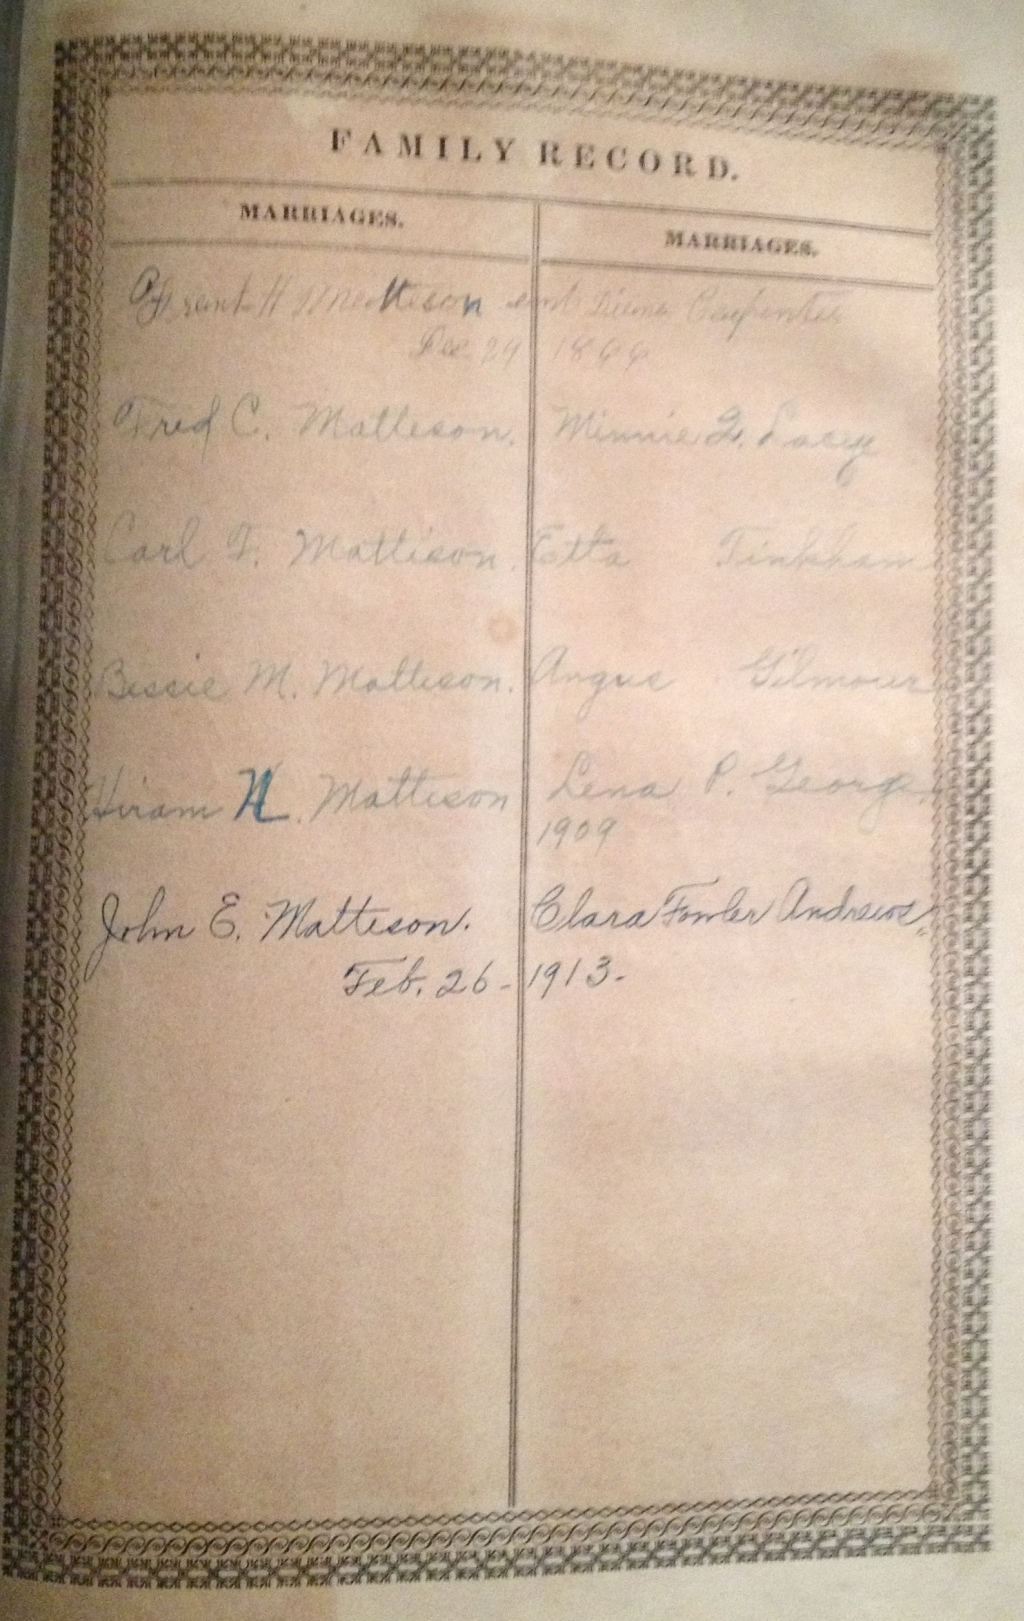 FAMILY RECORD.
MARRIAGES. MARRIAGES.
Frank H Matteson and Carpenter
Dec 24 1866
Fred C. Matteson. Minnie G. Lacey
Carl F. Mattison. Etta Tinkham
Bessie M. Matteson. Angus Gilmour
Hiram H. Matteson Lena P. George.
1909
John E. Matteson. Clara Fowler Andrews.
Feb. 26 - 1913 -